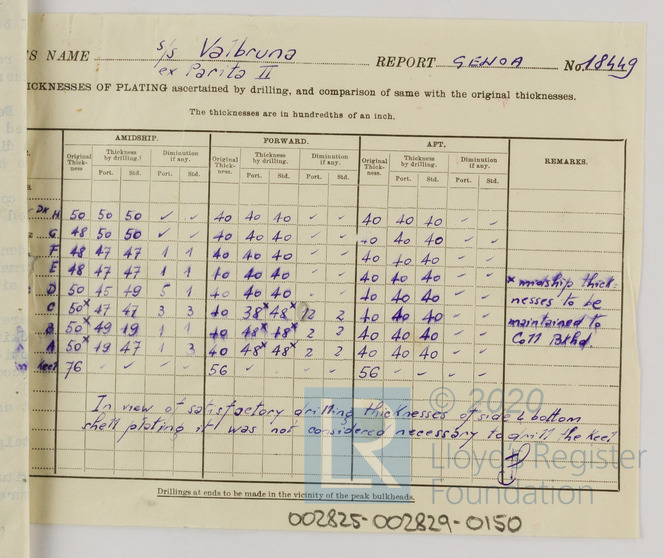 'S NAME s/s Valbruna REPORT GENOA No. 18449
ex Parita II
ICKNESSES OF PLATING ascertained by drilling, and comparison of same with the original thicknesses.
The thicknesses are in hundredths of an inch.
AMIDSHIP. FORWARD. AFT. REMARKS.
Original Thick-ness Thickness by drilling. Diminution if any. Original Thick-ness Thickness by drilling. Diminution if any. Original Thick-ness Thickness by drilling. Diminution if any.
Port. Std. Port. Std. Port. Std. Port. Std. Port. Std. Port. Std.
DK H 50 50 50 ✓ ✓ 40 40 40 - - 40 40 40 - -
G 48 50 50 ✓ ✓ 40 40 40 - - 40 40 40 - -
F 48 47 47 1 1 40 40 40 - - 40 40 40 - -
E 48 47 47 1 1 40 40 40 - - 40 40 40 - -
D 50 45 49 5 1 40 40 40 - - 40 40 40 - -
C 50x 47 47 3 3 40 38x 48x 2 40 40 40 - -
B 50x 49 49 1 1 40 48x 48x 2 2 40 40 40 - -
A 50x 49 47 1 3 40 48x 48x 2 2 40 40 40 - -
Keel 76 - - - - 56 - - - - 56 - - - -
x midship thick-
nesses to be
maintained to
Coll Bkhd.
In view of satisfactory drilling thicknesses of side & bottom
shell plating it was not considered necessary to drill the keel
© 2020
LR Lloyd's Register
Foundation
Drillings at ends to be made in the vicinity of the peak bulkheads.
002825-002829-0150